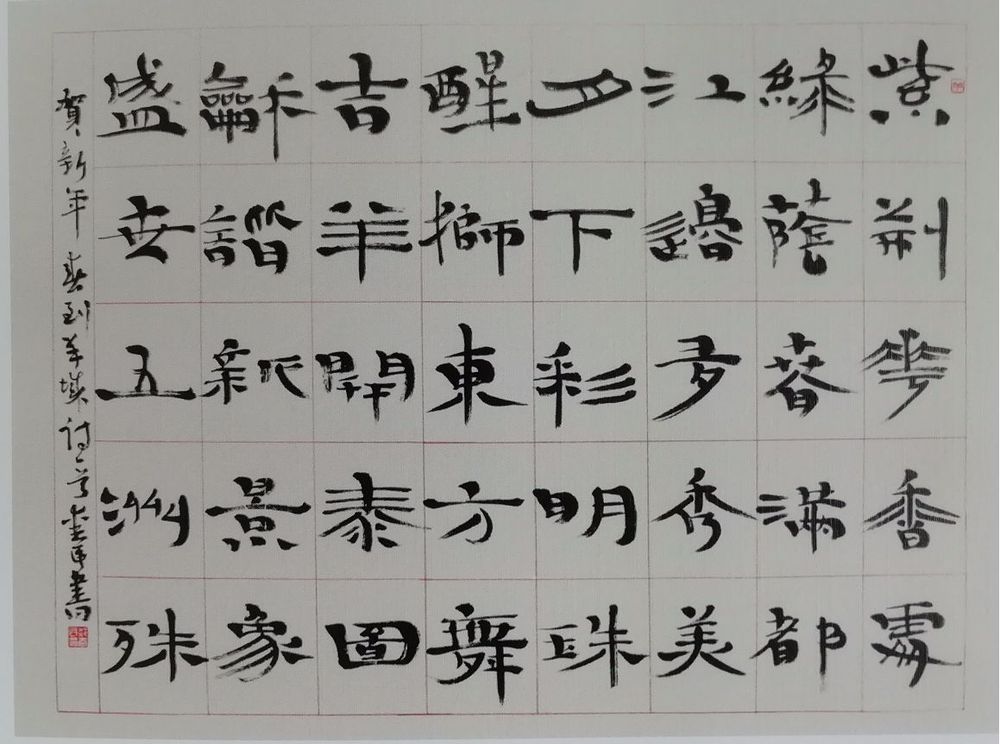 紫荊華香處
綠蔭春滿都
江邊多秀美
月下彩明珠
醒獅東方舞
吉羊開泰圖
龢諧新景象
盛世五洲殊
賀新年 春到羊城詩一首 書